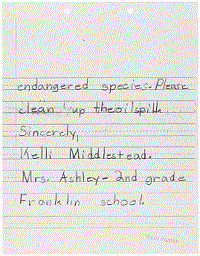 endangered species. Please
clean up the oil spill.
Sincerely,
Kelli Middlestead.
Mrs. Ashley - 2nd grade
Franklin school.